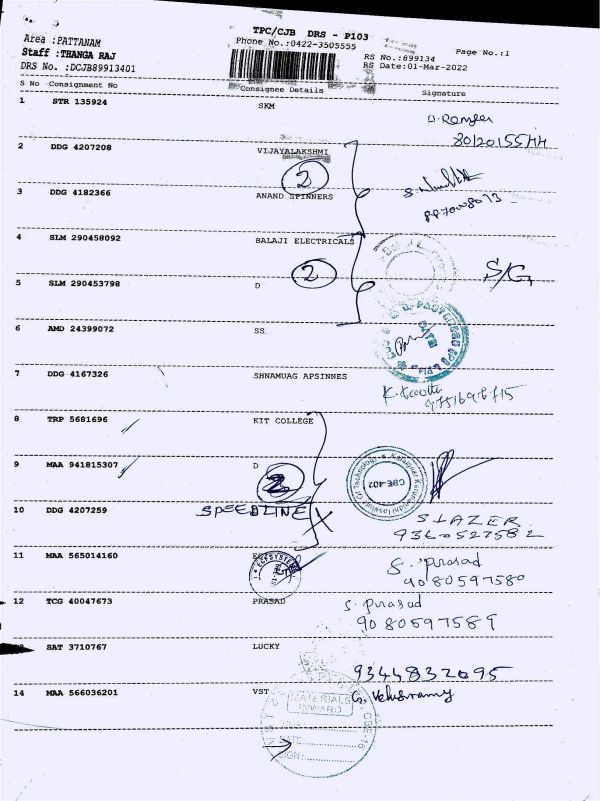 TPC/CJB DRS - P103
Area :PATTANAM
Phone No.:0422-3505555
Page No.:1
Staff :THANGA RAJ
RS No.:899134
DRS No. :DCJB89913401
RS Date:01-Mar-2022
S No Consignment No Consignee Details Signature
1 STR 135924 SKM
80120155HH
2 DDG 4207208 VIJAYALAKSHMI
2
3 DDG 4182366 ANAND SPINNERS
4 SLM 290458092 BALAJI ELECTRICALS
2 S/G
5 SLM 290453798 D
6 AMD 24399072 SS
7 DDG 4167326 SHNAMUAG APSINNES
8 TRP 5681696 KIT COLLEGE
9 MAA 941815307 D
2
CBE-402
10 DDG 4207259 SPEEDZINE
SIAZER
9360527582
11 MAA 565014160
S. Prasad
9080597580
12 TCG 40047673 PRASAD
S. Prasad
9080597589
SAT 3710767 LUCKY
9344832095
14 MAA 566036201 VST
G. Veluswamy
MATERIALS
INWARD
DATE
SIGN: